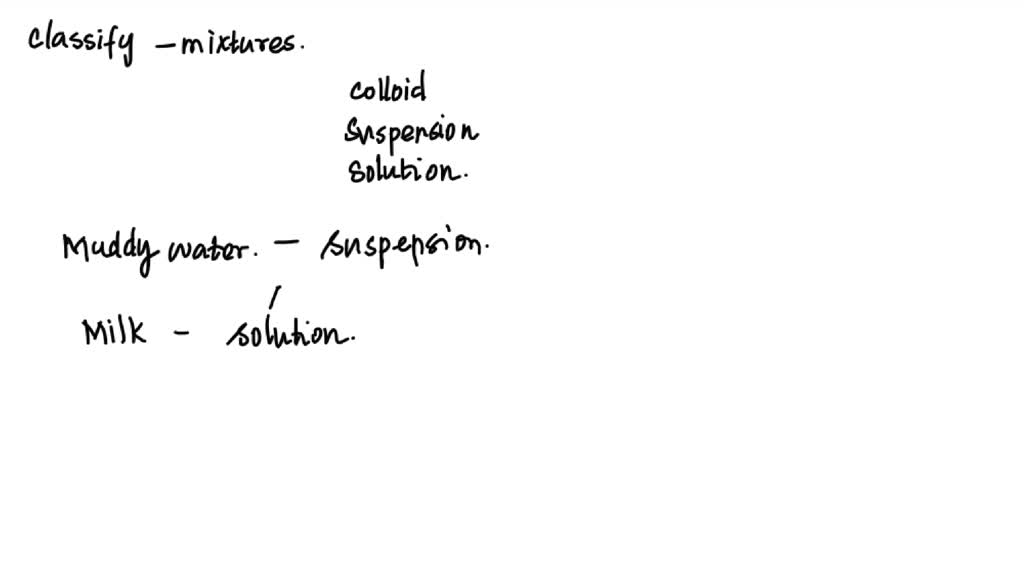 classify - mixtures.
colloid
suspension
solution.
Muddy water. - suspepsion.
Milk - solution.